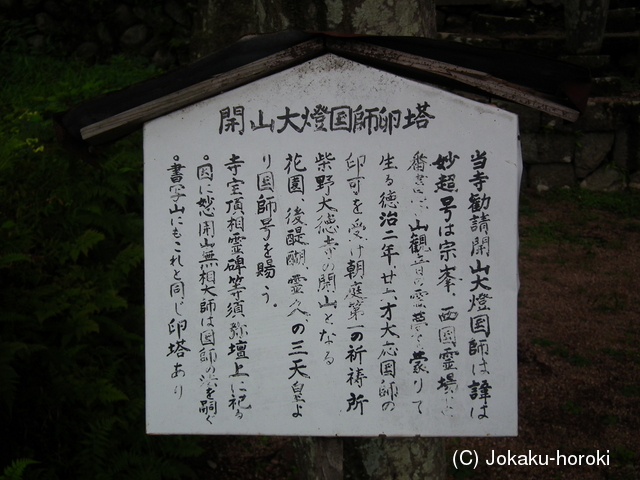 開山大燈国師卵塔
当寺勧請開山大燈国師は諱は
妙超号は宗峯、西国霊場に
番書写山観音の霊夢を蒙りて
生る徳治二年廿六才大応国師の
印可を受け朝庭第一の祈祷所
柴野大徳寺の開山となる
花園、後醍醐、霊久の三天皇よ
り国師号を賜う。
寺宝頂相霊碑等須弥壇上に祀る
○因に妙心開山無相大師は国師の法を嗣ぐ
○書写山にもこれと同じ卵塔あり
(C) Jokaku-horoki